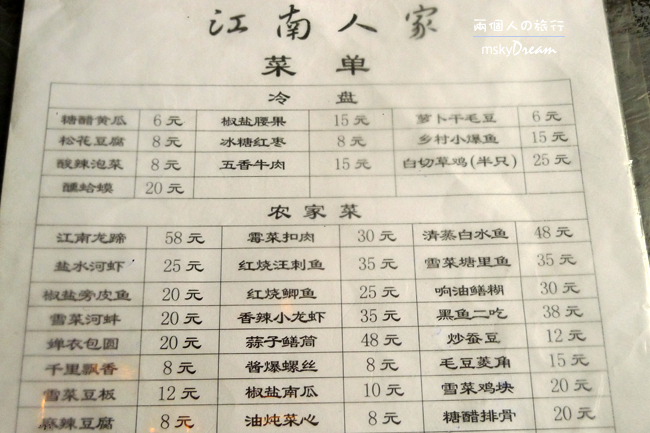 江南人家
兩個人の旅行
mskyDream
菜单
冷盘
糖醋黄瓜 6元 椒盐腰果 15元 萝卜干毛豆 6元
松花豆腐 8元 冰糖红枣 8元 乡村小爆鱼 15元
酸辣泡菜 8元 五香牛肉 15元 白切草鸡(半只) 25元
醺蛤蟆 20元
农家菜
江南龙蹄 58元 霉菜扣肉 30元 清蒸白水鱼 48元
盐水河虾 25元 红烧汪刺鱼 35元 雪菜塘里鱼 35元
椒盐旁皮鱼 20元 红烧鲫鱼 25元 响油鳝糊 30元
雪菜河蚌 20元 香辣小龙虾 35元 黑鱼二吃 38元
蝉衣包圆 20元 蒜子鳝筒 48元 炒蚕豆 12元
千里飘香 8元 酱爆螺丝 8元 毛豆菱角 15元
雪菜豆板 12元 椒盐南瓜 10元 雪菜鸡块 20元
麻辣豆腐 8元 油炖菜心 8元 糖醋排骨 20元